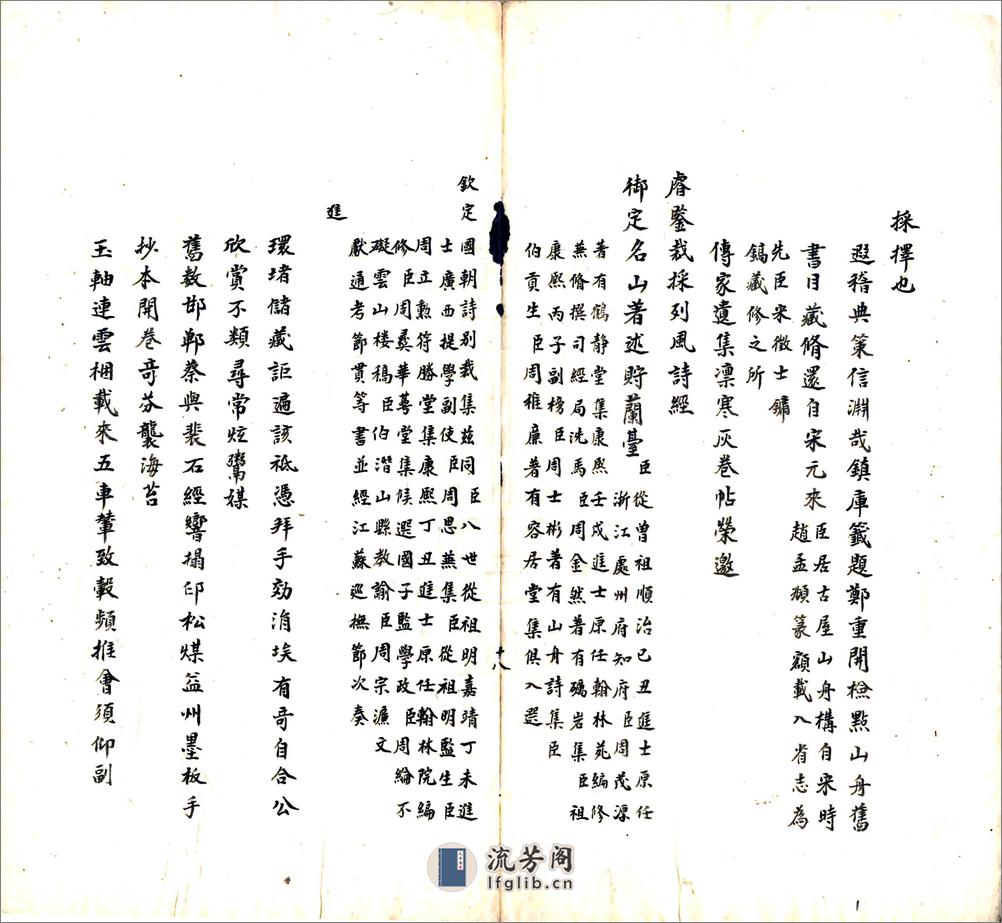 採擇也
遐稽典策信淵哉鎮庫籤題鄭重開檢點山舟舊
書目藏脩還自宋元來臣居古屋山舟構自宋時
趙孟頫篆額載入省志為
先臣宋徵士鏞
鎬藏修之所
傳家遺集凛寒灰巻帖榮邀
睿鑒裁採列風詩經
御定名山著述貯蘭臺臣從曽祖順治己丑進士原任
浙江處州府知府臣周茂源
著有鶴静堂集康熙壬戌進士原任翰林苑編修
兼脩撰司經局洗馬臣周金然著有礪岩集臣祖
康熙丙子副榜臣周士彬著有山舟詩集臣
伯貢生臣周稚廉著有容居堂集俱入選
十八
欽定國朝詩别裁集兹同臣八世從祖明嘉靖丁未進
士廣西提學副使臣周思兼集臣從祖明監生臣
周立勲符勝堂集康熙丁丑進士原任翰林院編
修臣周彝華蕚堂集候選國子監學政臣周綸不
礙雲山楼稿臣伯潛山縣教諭臣周宗濂文
獻通考節貫等書並經江蘇巡撫節次奏
進
環堵儲藏詎遍該祗憑拜手効涓埃有奇自合公
欣賞不類尋常炫鬻媒
舊数邯鄲蔡與裴石經響搨印松煤益州墨板手
抄本開巻奇芬襲海苔
玉軸連雲梱載來五車輦致轂頻推會須仰副
流芳阁
lfglib.cn